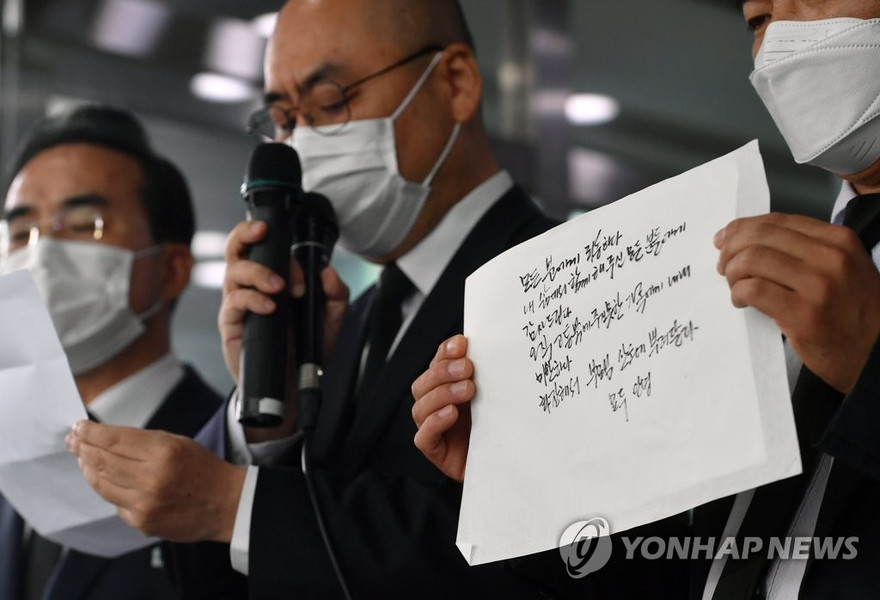 모든 분에게 죄송하다
내 삶에서 함께 해 주신 모든 분들에게
감사드린다
오직 고통밖에 주지 못한 가족에게 내내
미안하다
화장해서 부모님 산소에 뿌려달라
모두 안녕
YONHAP NEWS